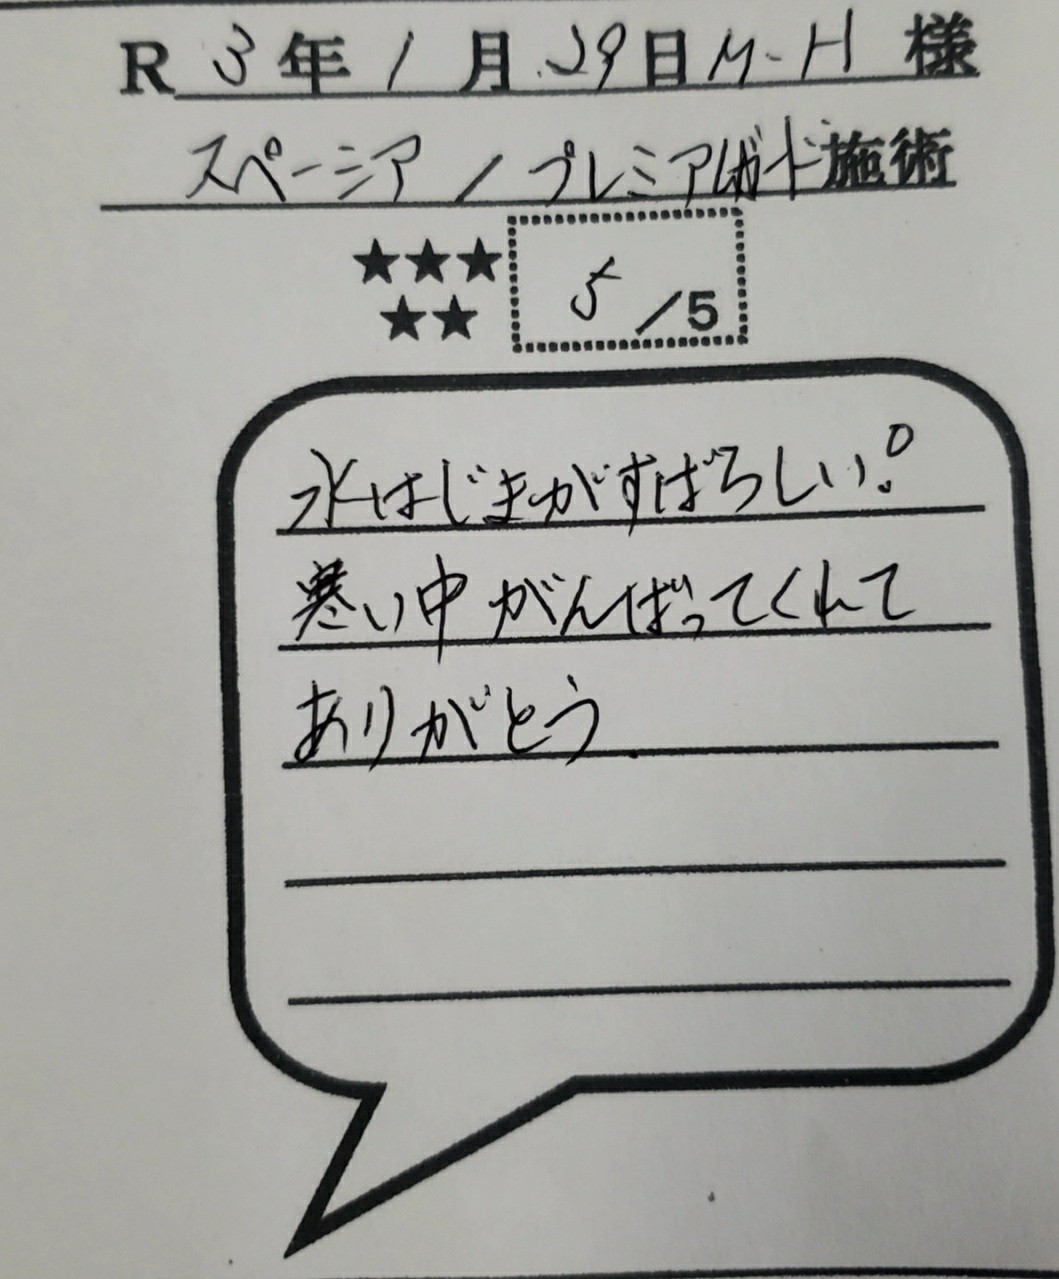 R 3年 1月 29日 M-H 様
スペーシア / プレミアムガード施術
★★★ 5 /5
★★
水はじきがすばらしい!
寒い中がんばってくれて
ありがとう